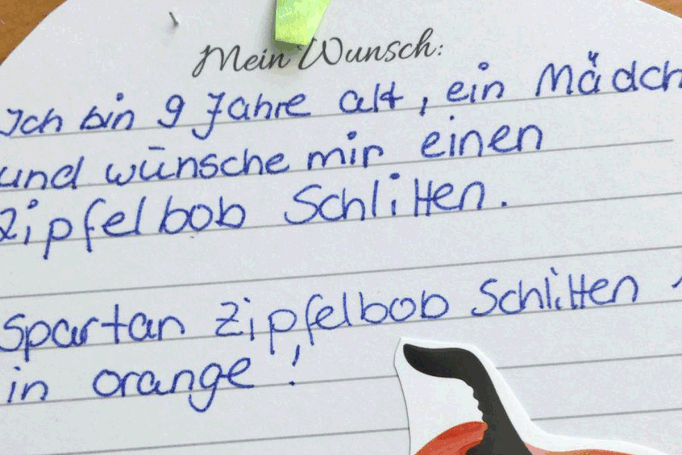 Mein Wunsch:
Ich bin 9 Jahre alt, ein Mädch
und wünsche mir einen
Zipfelbob Schlitten.
Spartan Zipfelbob Schlitten
in orange!